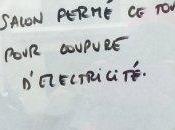 SALON FERMÉ CE
POUR COUPURE
D'ELECTRICITÉ.